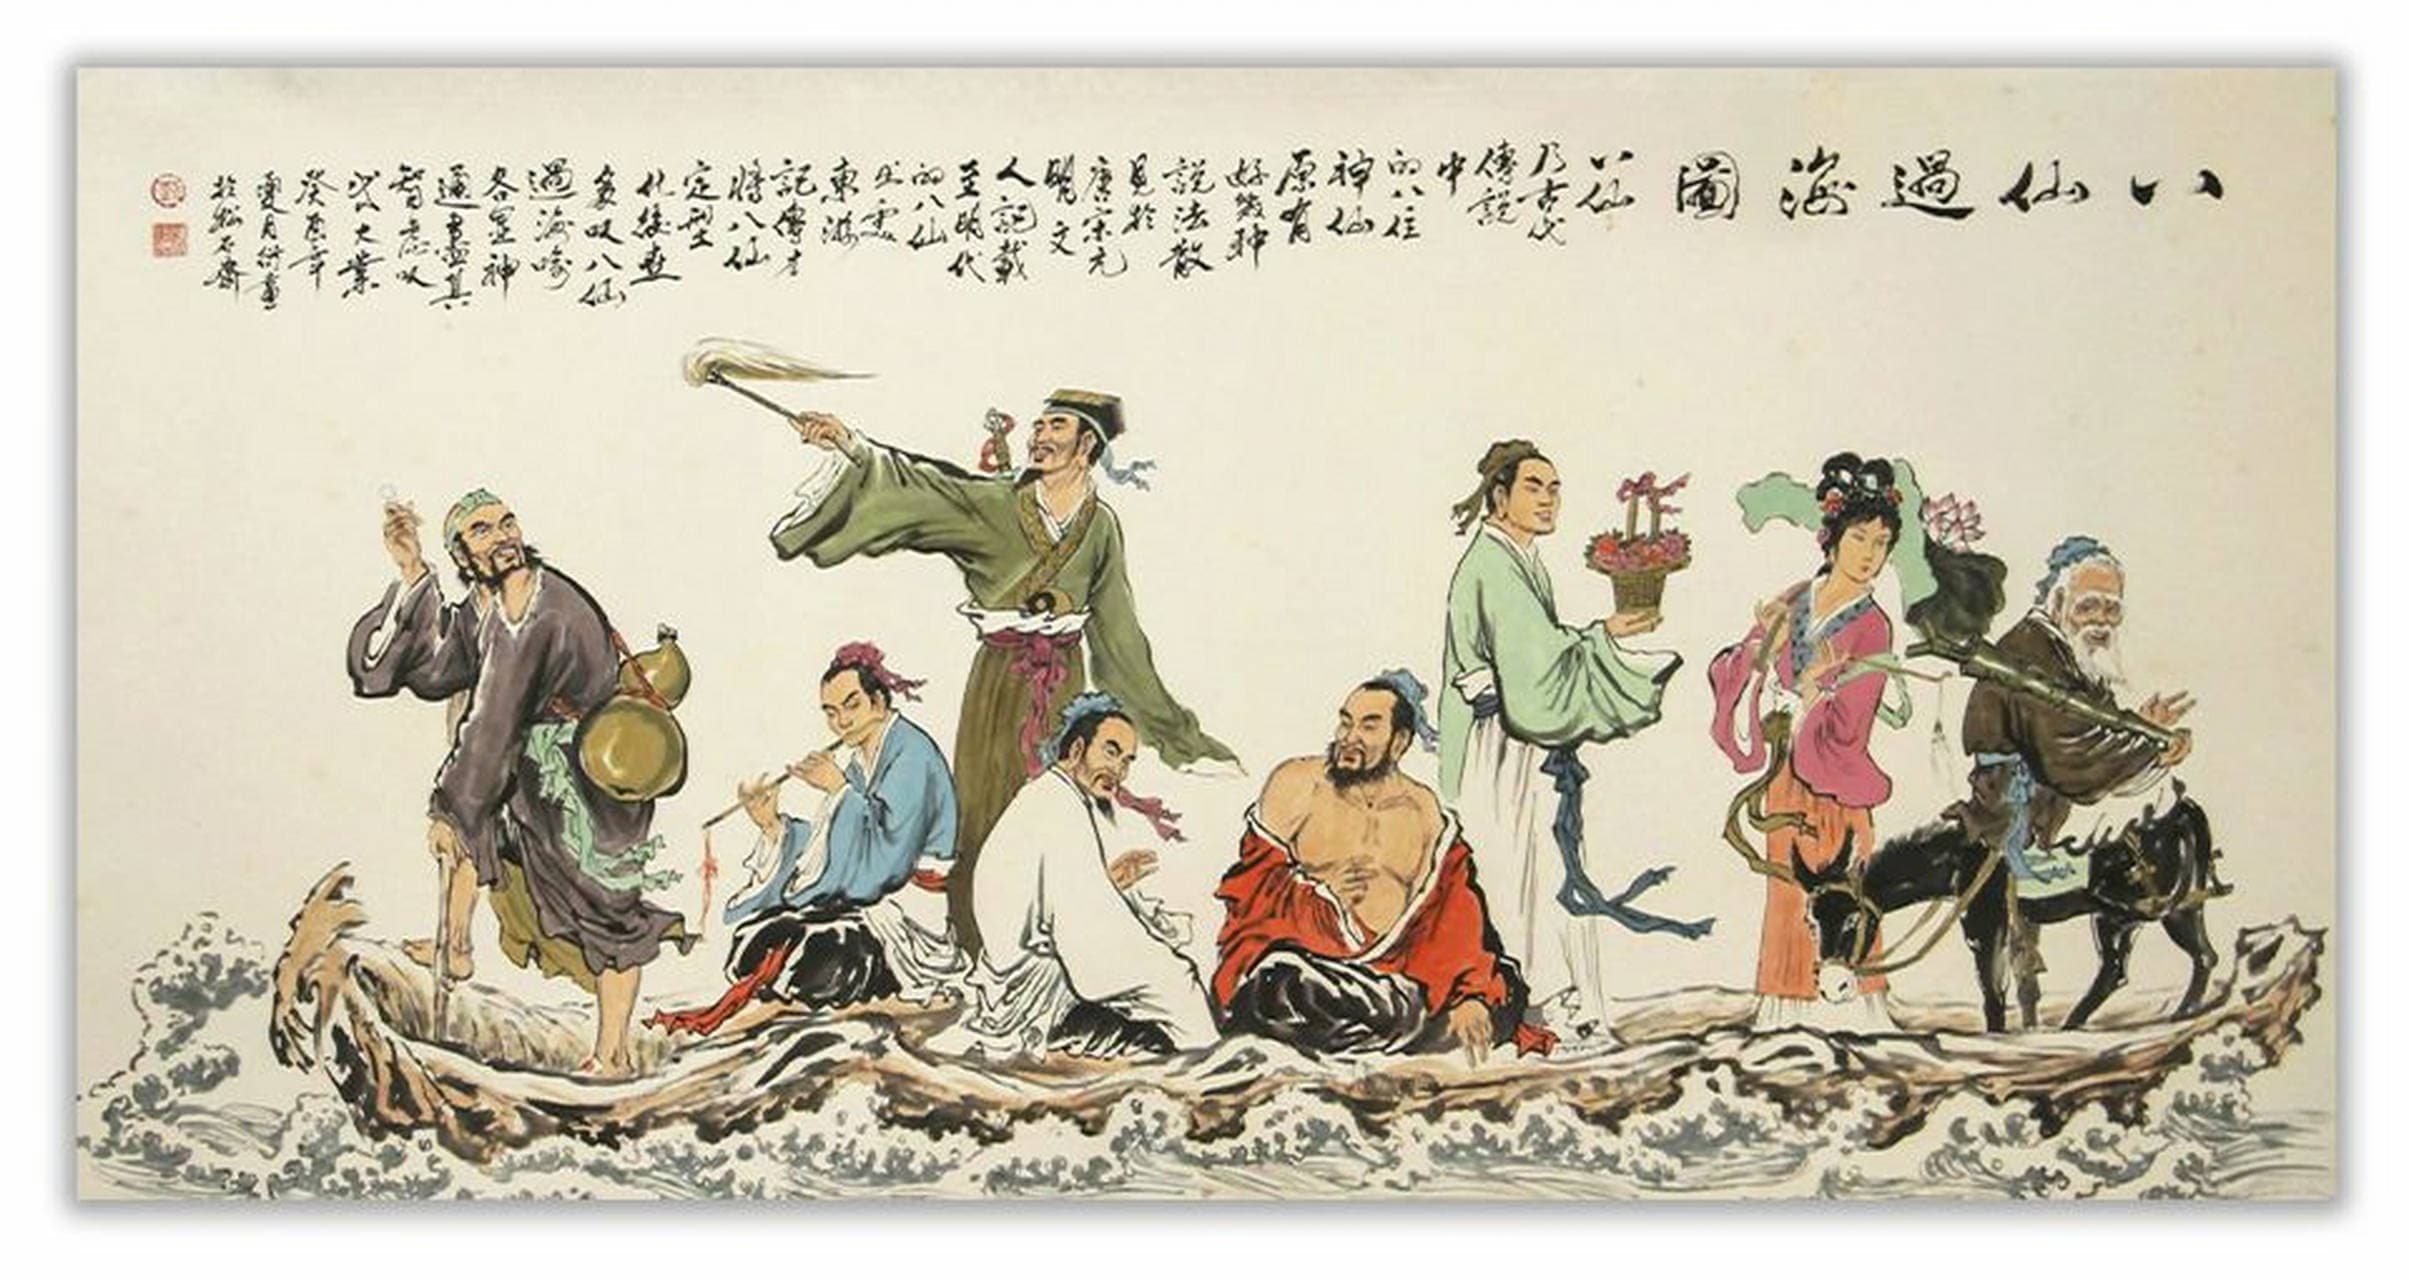 八仙過海圖
八仙
乃古代
傳說
中
的八位
神仙
原有
好幾种
說法散
見於
唐宋元
明文
人記載
至明代
的八仙
出處
東游
記傳才
將八仙
定型
化後世
多以八仙
過海喻
各显神
通盡其
智慧以
成大業
癸酉年
夏月併畫
於松石齋